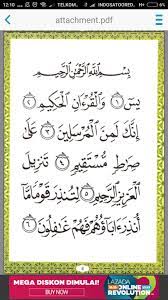 12:10 TELKOM INDOSATOORED
attachment.pdf
بِسْمِ اللَّهِ الرَّحْمَٰنِ الرَّحِيمِ
يس ١ وَالْقُرْءَانِ الْحَكِيمِ ٢
إِنَّكَ لَمِنَ الْمُرْسَلِينَ ٣ عَلَىٰ
صِرَٰطٍ مُّسْتَقِيمٍ ٤ تَنزِيلَ
الْعَزِيزِ الرَّحِيمِ ٥ لِتُنذِرَ قَوْمًا مَّا
أُنذِرَ ءَابَاؤُهُمْ فَهُمْ غَٰفِلُونَ ٦
MEGA DISKON DIMULAI!
BUY NOW
LAZADA
ONLINE
REVOLUTION